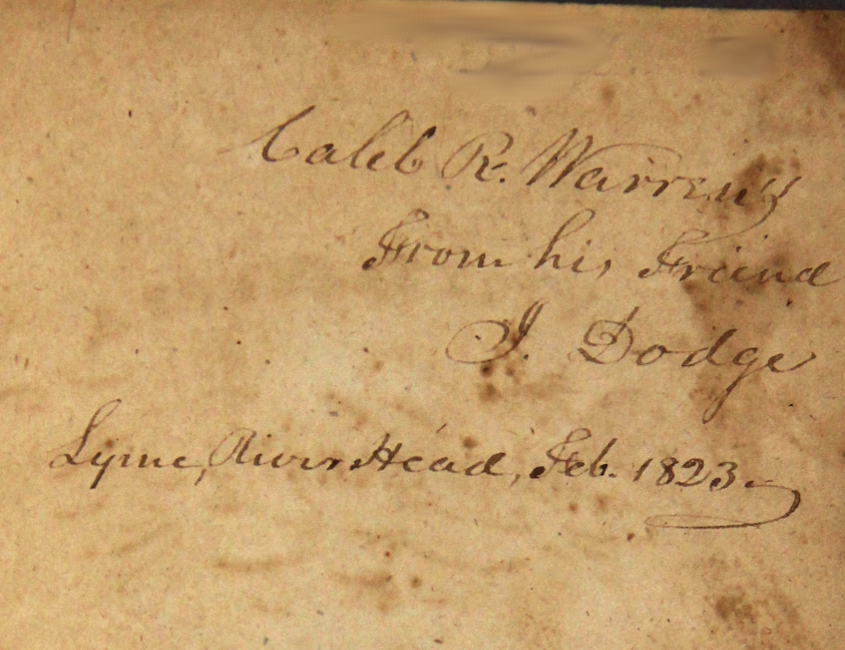 Caleb R. Warren's
From his Friend
J. Dodge
Lyme, River Head, Feb. 1823.